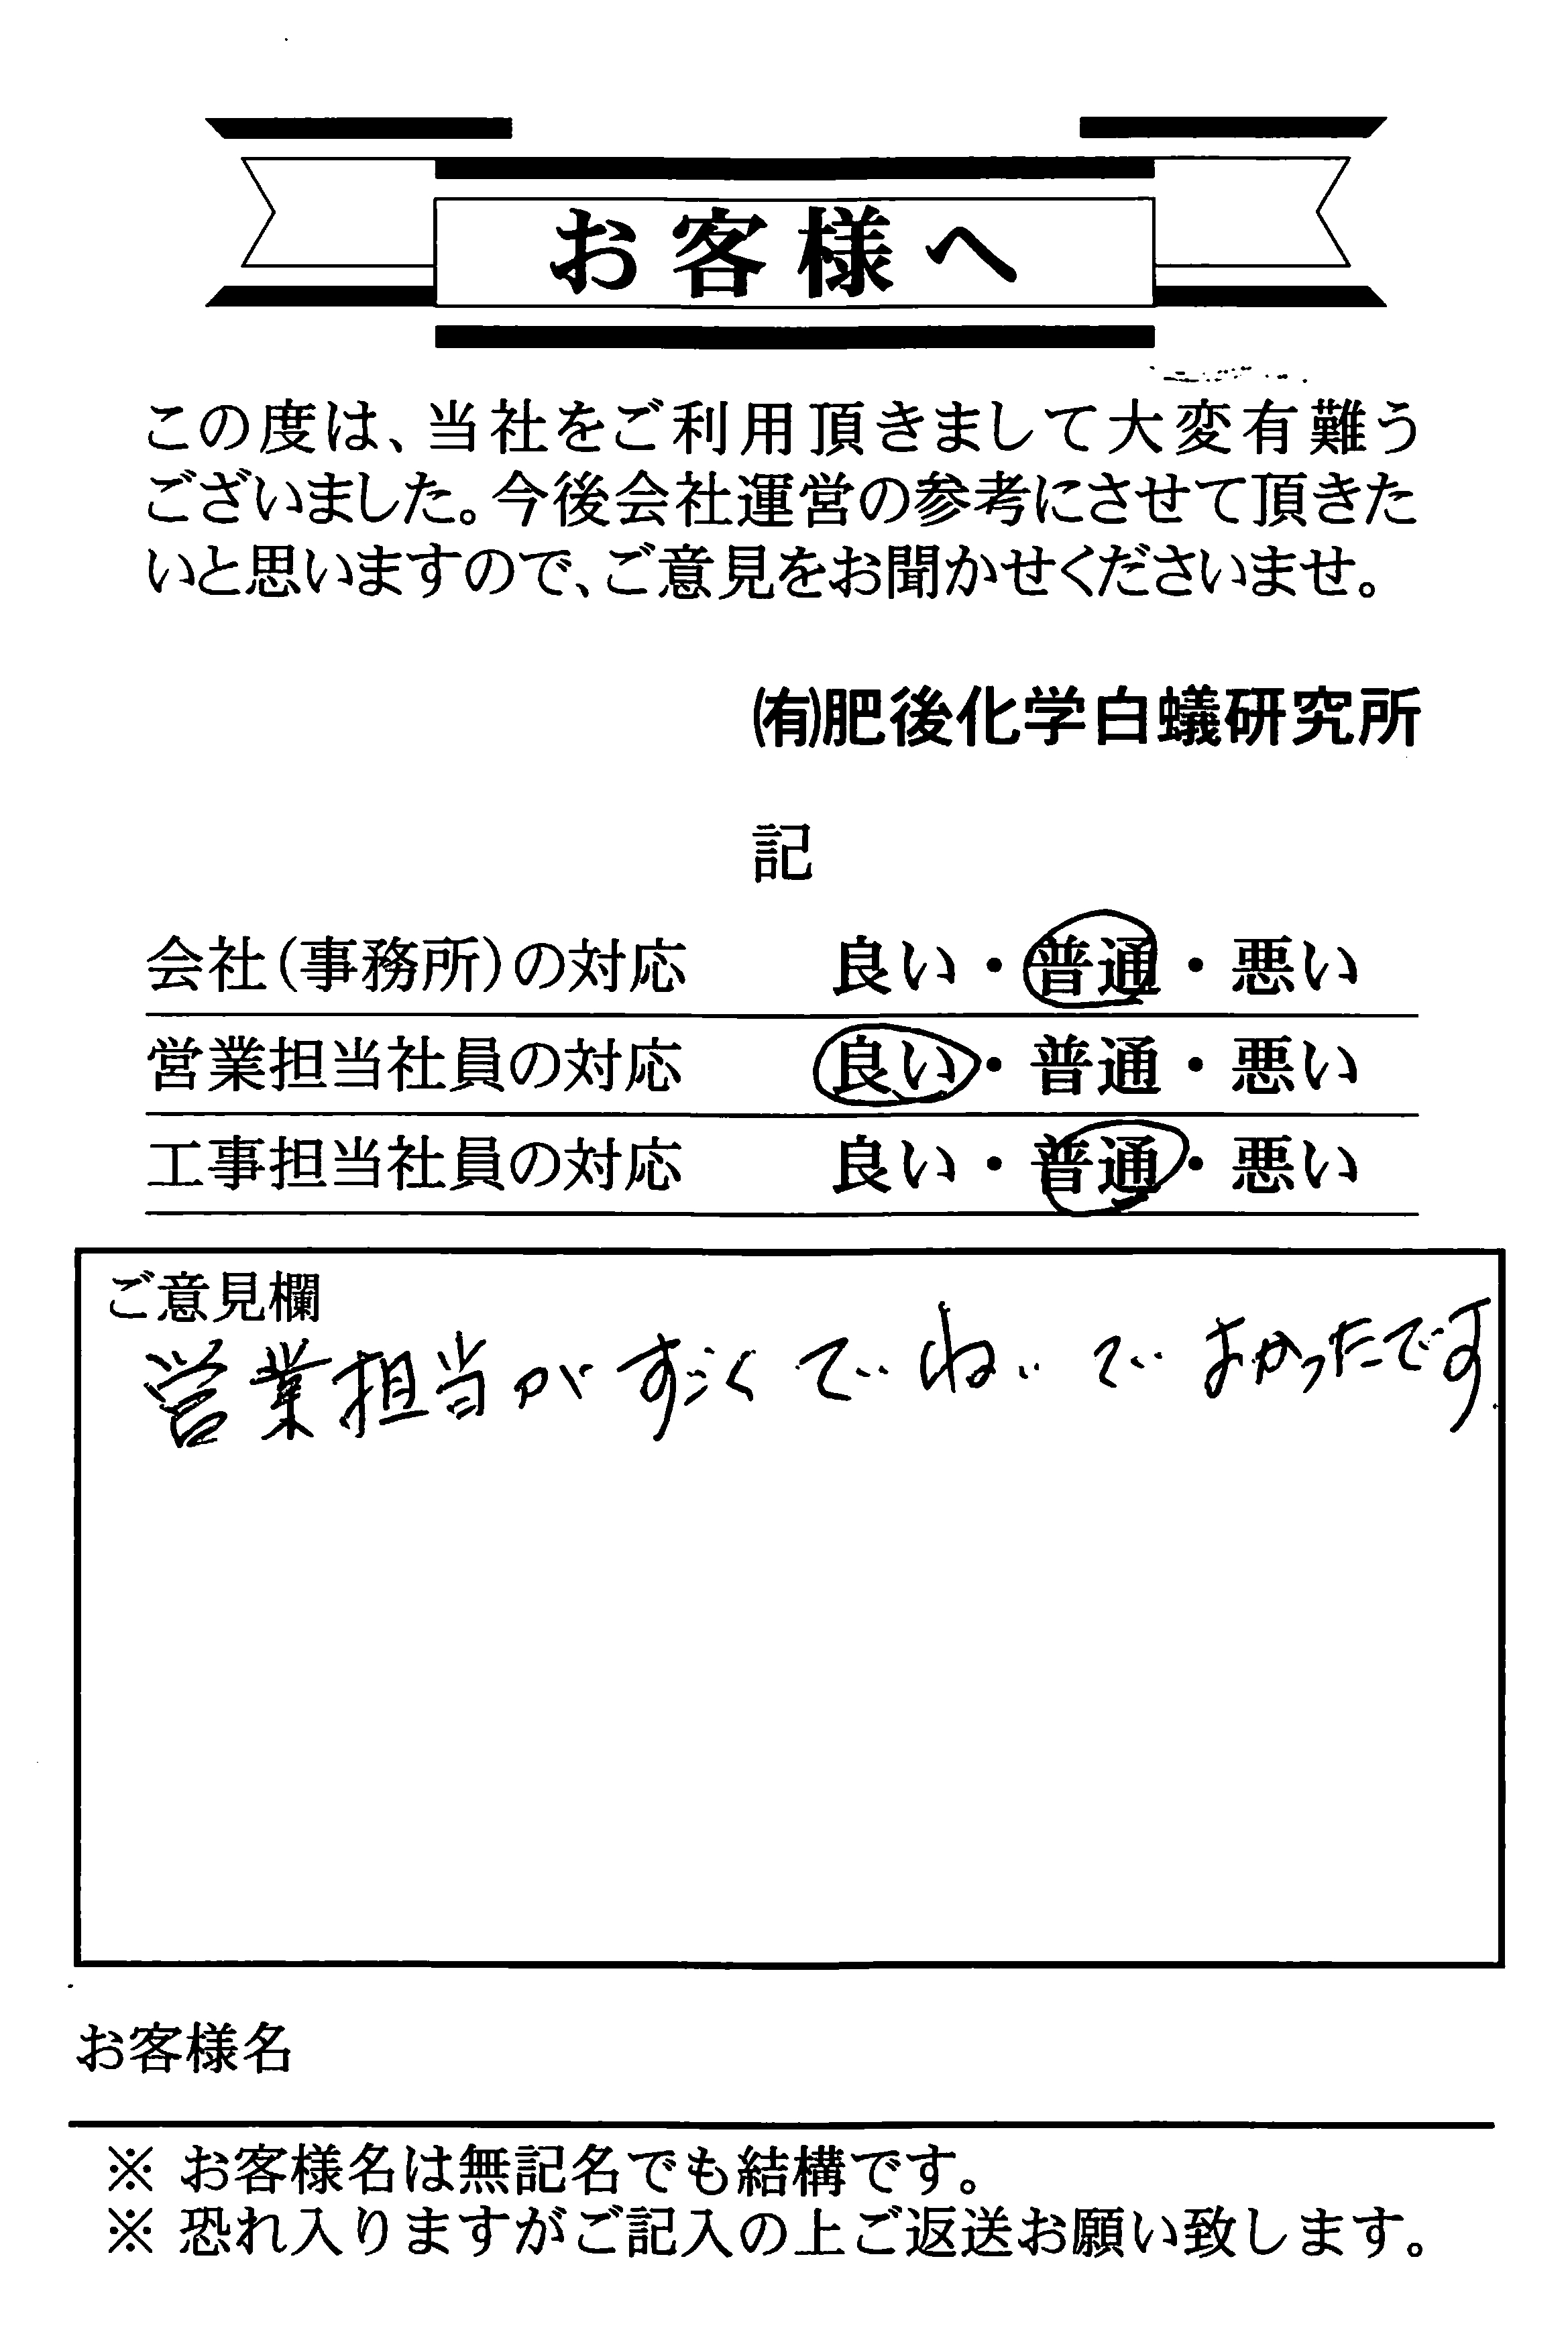 お客様へ
この度は、当社をご利用頂きまして大変有難う
ございました。今後会社運営の参考にさせて頂きた
いと思いますので、ご意見をお聞かせくださいませ。
㈲肥後化学白蟻研究所
記
会社(事務所)の対応 良い・普通・悪い
営業担当社員の対応 良い・普通・悪い
工事担当社員の対応 良い・普通・悪い
ご意見欄
営業担当がすごくてぃねぃでよかったです
お客様名
※ お客様名は無記名でも結構です。
※ 恐れ入りますがご記入の上ご返送お願い致します。